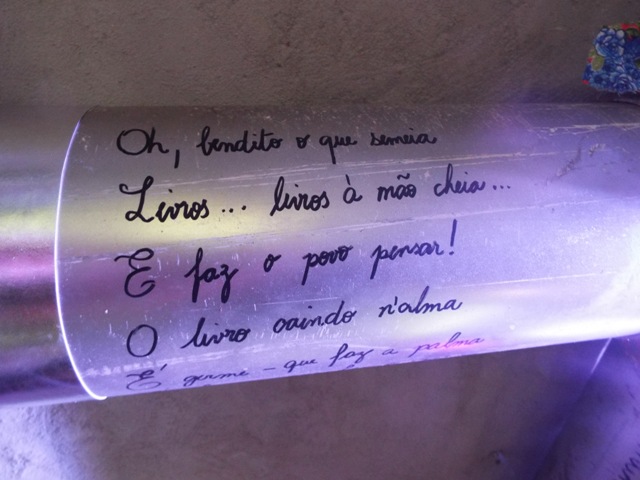 Oh, bendito o que semeia
Livros... livros à mão cheia...
E faz o povo pensar!
O livro caindo n'alma
É germe - que faz a palma